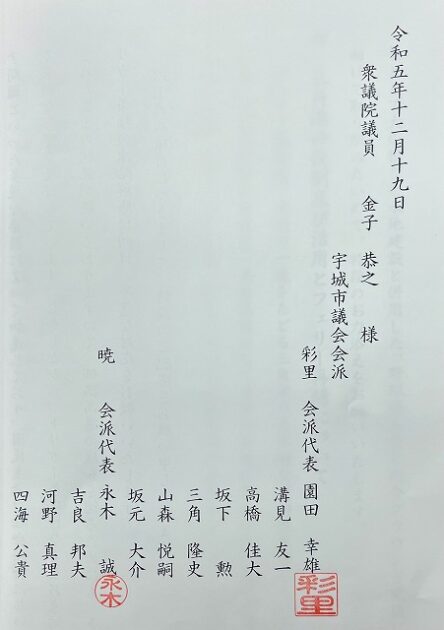 令和五年十二月十九日
衆議院議員 金子 恭之 様
宇城市議会会派
彩里 会派代表 園田 幸雄
彩里
溝見 友一
高橋 佳大
坂下 勲
三角 隆史
山森 悦嗣
坂元 大介
暁 会派代表 永木 誠
永木
吉良 邦夫
河野 真理
四海 公貴